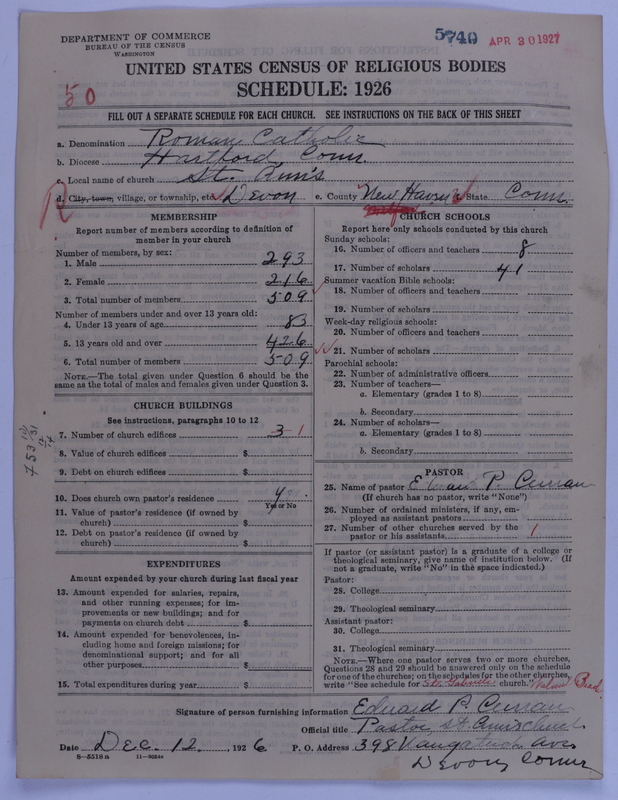 DEPARTMENT OF COMMERCE
BUREAU OF THE CENSUS
WASHINGTON
5740 APR 30 1927
UNITED STATES CENSUS OF RELIGIOUS BODIES
SCHEDULE: 1926
50
FILL OUT A SEPARATE SCHEDULE FOR EACH CHURCH. SEE INSTRUCTIONS ON THE BACK OF THIS SHEET
a. Denomination Roman Catholic
b. Diocese Hartford, Conn.
c. Local name of church St. Ann's
d. City, town, village, or township, etc. Devon e. County New Haven State Conn.
R
MEMBERSHIP
Report number of members according to definition of
member in your church
Number of members, by sex:
1. Male 293
2. Female 216
3. Total number of members 509
Number of members under and over 13 years old:
4. Under 13 years of age 83
5. 13 years old and over 426
6. Total number of members 509
NOTE.—The total given under Question 6 should be the
same as the total of males and females given under Question 3.
CHURCH BUILDINGS
See instructions, paragraphs 10 to 12
7. Number of church edifices 3 1
8. Value of church edifices $
9. Debt on church edifices $
10. Does church own pastor's residence
Yes or No
11. Value of pastor's residence (if owned by
church) $
12. Debt on pastor's residence (if owned by
church) $
EXPENDITURES
Amount expended by your church during last fiscal year
13. Amount expended for salaries, repairs,
and other running expenses; for im-
provements or new buildings; and for
payments on church debt $
14. Amount expended for benevolences, in-
cluding home and foreign missions; for
denominational support; and for all
other purposes $
15. Total expenditures during year $
CHURCH SCHOOLS
Report here only schools conducted by this church
Sunday schools:
16. Number of officers and teachers 8
17. Number of scholars 41
Summer vacation Bible schools:
18. Number of officers and teachers
19. Number of scholars
Week-day religious schools:
20. Number of officers and teachers
21. Number of scholars
Parochial schools:
22. Number of administrative officers
23. Number of teachers—
a. Elementary (grades 1 to 8)
b. Secondary
24. Number of scholars—
a. Elementary (grades 1 to 8)
b. Secondary
PASTOR
25. Name of pastor Edward P. Curran
(If church has no pastor, write "None")
26. Number of ordained ministers, if any, em-
ployed as assistant pastors
27. Number of other churches served by the
pastor or his assistants 1
If pastor (or assistant pastor) is a graduate of a college or
theological seminary, give name of institution below. (If
not a graduate, write "No" in the space indicated.)
Pastor:
28. College
29. Theological seminary
Assistant pastor:
30. College
31. Theological seminary
NOTE.—Where one pastor serves two or more churches,
Questions 28 and 29 should be answered only on the schedule
for one of the churches; on the schedules for the other churches,
write "See schedule for St. Gabriels church."
Signature of person furnishing information Edward P. Curran
Official title Pastor St. Ann's church
Date Dec. 12, 1926 P. O. Address 398 Naugatuck Ave
Devon, Conn
8—5518a 11—